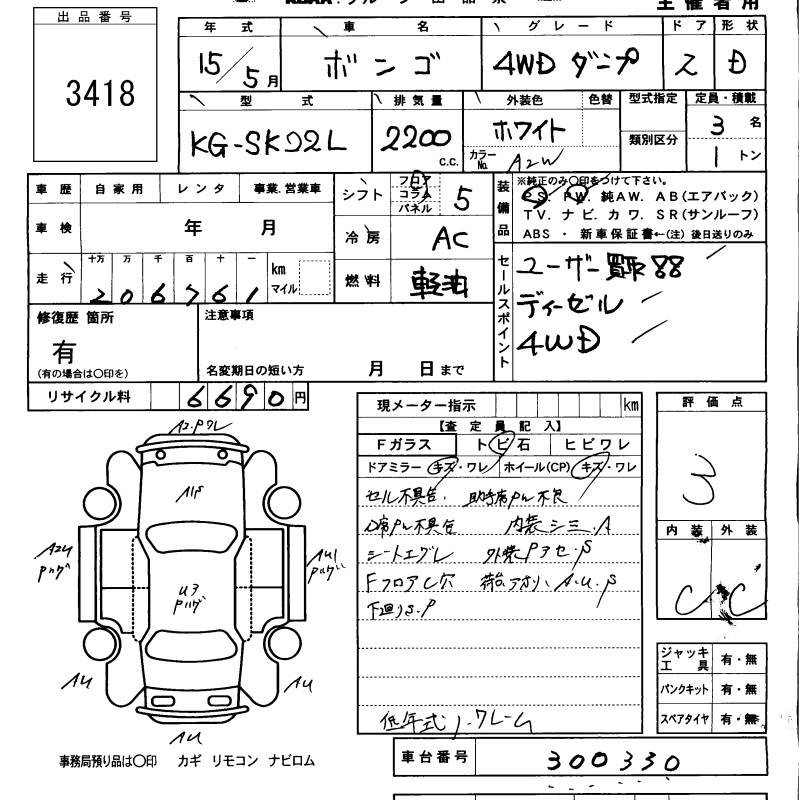 主催者用
出品番号
3418
年式 車名 グレード ドア 形状
15/5月 ボンゴ 4WD ダンプ 2 D
型式 排気量 外装色 色替 型式指定 定員・積載
KG-SK22L 2200 c.c. ホワイト 3名
カラーNo. A2W 類別区分 1トン
車歴 自家用 レンタ 事業.営業車
車検 年 月
走行 十万 万 千 百 十 一 km マイル
206761
シフト フロア コラム パネル 5
冷房 AC
燃料 軽油
装備品
※純正のみ〇印をつけて下さい。
PS. PW. 純AW. AB(エアバッグ)
TV. ナビ. カワ. SR(サンルーフ)
ABS ・ 新車保証書←(注) 後日送りのみ
セールスポイント
ユーザー買取88
ディーゼル
4WD
修復歴 箇所
有
(有の場合は〇印を)
注意事項
名変期日の短い方 月 日まで
リサイクル料 6690円
現メーター指示 km
【査定員記入】
Fガラス トビ石 ヒビワレ
ドアミラー(キズ・ワレ) ホイール(CP)(キズ・ワレ)
セル不具合. 助手席PW不良
D席PW不具合 内装シミ.A
シートエグレ
Fフロアし穴 A.U.P
下廻りS.P
低年式ノークレーム
評価点
3
内装 外装
C C
ジャッキ工具 有・無
パンクキット 有・無
スペアタイヤ 有・無
A2.Pワレ
A1P
A2U
Pハゲ
U3
Pハゲ
AU1
Pハゲ
AU
AU
AU
事務局預り品は〇印 カギ リモコン ナビロム
車台番号 300330